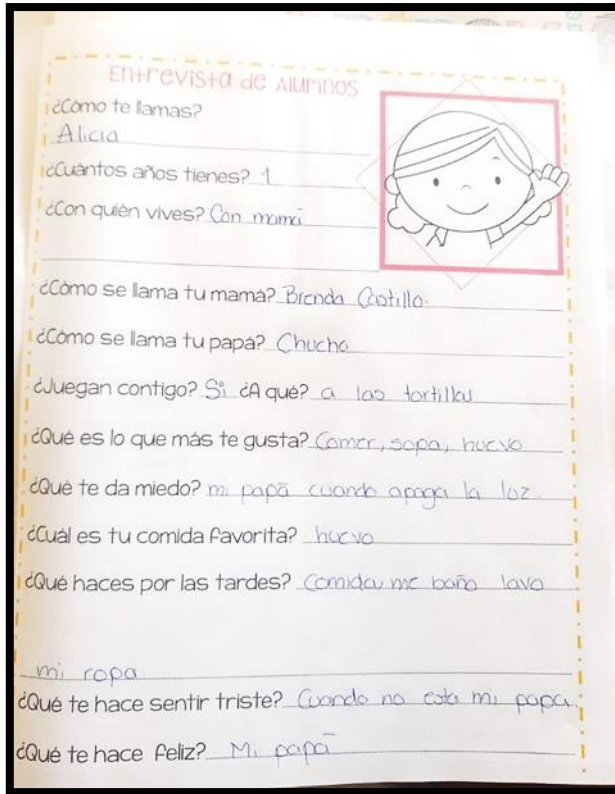 Entrevista de Alumnos
¿Cómo te llamas?
Alicia
¿Cuántos años tienes? 1
¿Con quién vives? Con mamá
¿Cómo se llama tu mamá? Brenda Castillo.
¿Cómo se llama tu papá? Chucho
¿Juegan contigo? Si ¿A qué? a las tortillas
¿Qué es lo que más te gusta? Comer, sopa, huevo
¿Qué te da miedo? mi papá cuando apaga la luz.
¿Cuál es tu comida favorita? huevo
¿Qué haces por las tardes? Comida me baño lavo
mi ropa
¿Qué te hace sentir triste? Cuando no esta mi papa.
¿Qué te hace feliz? Mi papá